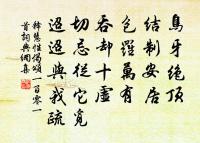 烏牙絕頂
結制安居
包羅萬有
吞却十虛
切忌從它覓
迢迢與我疏
釋慧性偈頌一百零一
首詞典網集